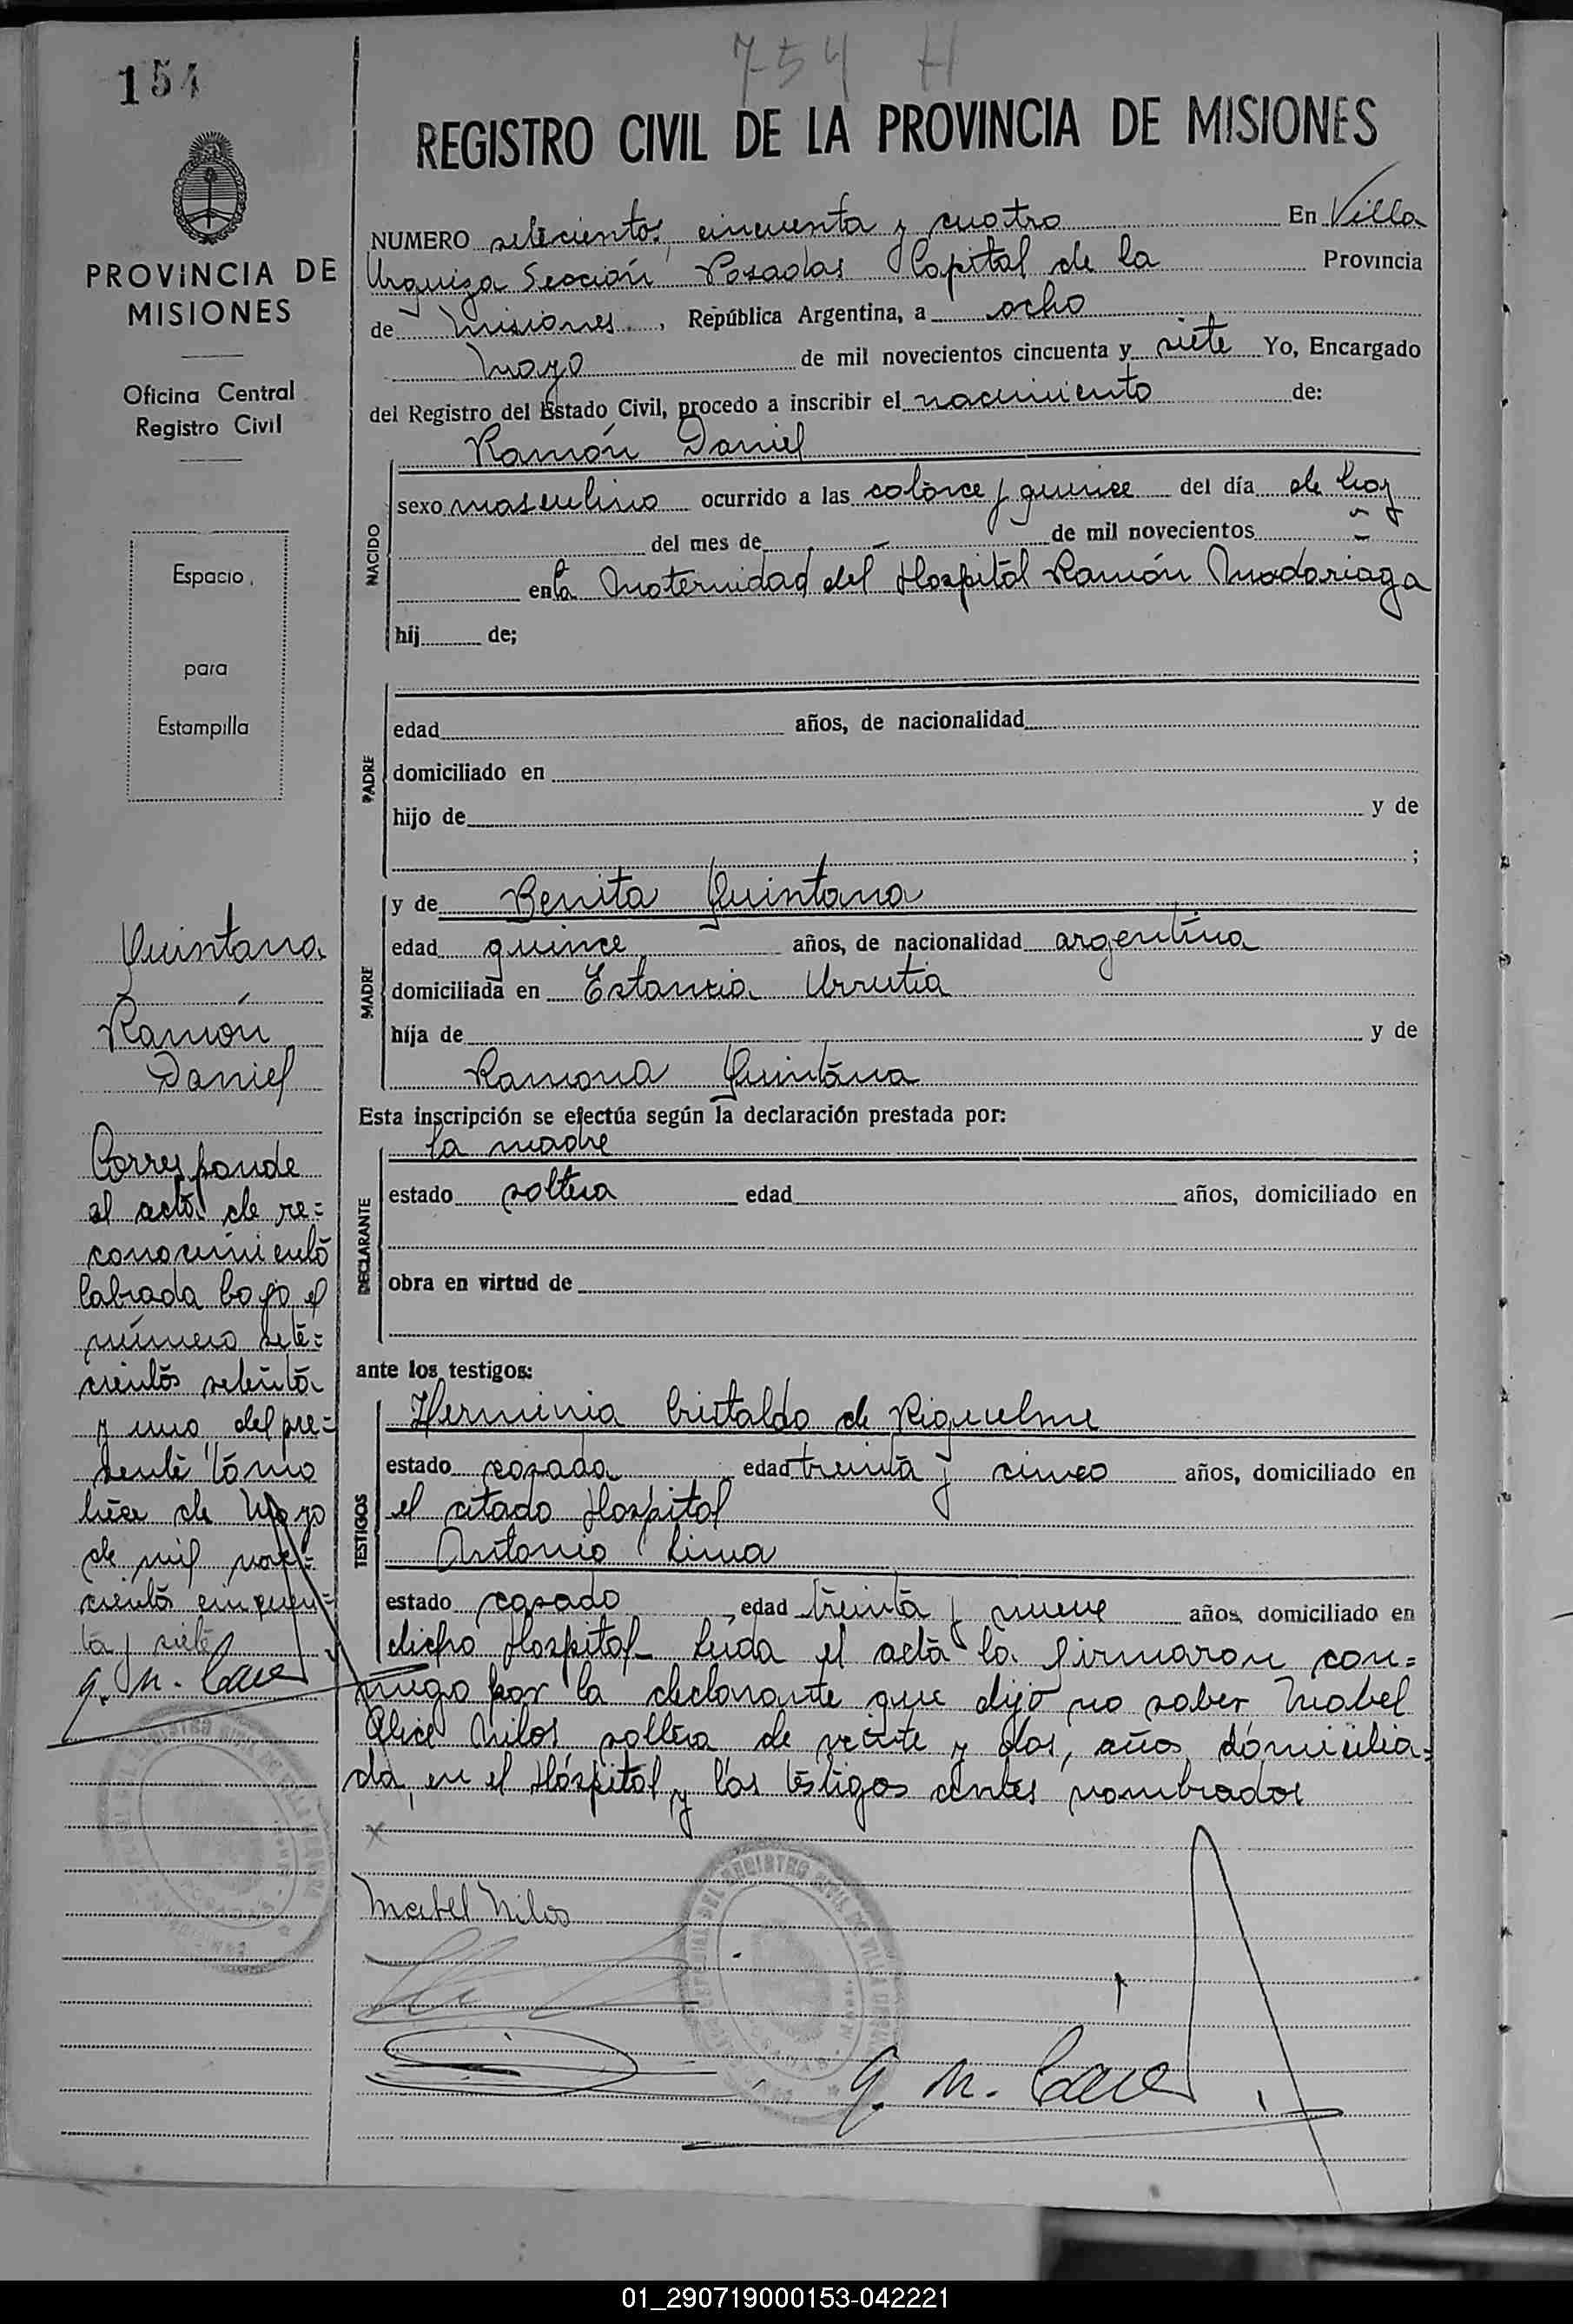 754 H
154
REGISTRO CIVIL DE LA PROVINCIA DE MISIONES
PROVINCIA DE
MISIONES
Oficina Central
Registro Civil
Espacio
para
Estampilla
NUMERO setecientos cincuenta y cuatro En Villa
Urquiza Sección Posadas Capital de la Provincia
de Misiones, República Argentina, a ocho
Mayo de mil novecientos cincuenta y siete Yo, Encargado
del Registro del Estado Civil, procedo a inscribir el nacimiento de:
Ramón Daniel
NACIDO
sexo masculino ocurrido a las catorce y quince del día de hoy
del mes de - de mil novecientos -
en la Maternidad del Hospital Ramón Madariaga
hij de;
PADRE
edad años, de nacionalidad
domiciliado en
hijo de y de
;
MADRE
y de Benita Quintana
edad quince años, de nacionalidad argentina
domiciliada en Estancia Urrutia
hija de y de
Ramona Quintana
Esta inscripción se efectúa según la declaración prestada por:
la madre
DECLARANTE
estado soltera edad años, domiciliado en
obra en virtud de
ante los testigos:
TESTIGOS
Herminia Cristaldo de Riquelme
estado casada edad treinta y cinco años, domiciliado en
el citado Hospital
Antonio Lima
estado casado, edad treinta y nueve años, domiciliado en
dicho Hospital- Leida el acta la firmaron con=
migo por la declarante que dijo no saber Mabel
Alice Milos soltera de veinte y dos, años, domicilia=
da, en el Hospital y los testigos antes nombrados
Mabel Milos
Quintana
Ramón
Daniel
Corresponde
al acta de re=
conocimiento
labrada bajo el
número sete=
cientos setenta
y uno del pre=
sente tomo
trece de Mayo
de mil nove=
cientos cincuen=
ta y siete
01_290719000153-042221